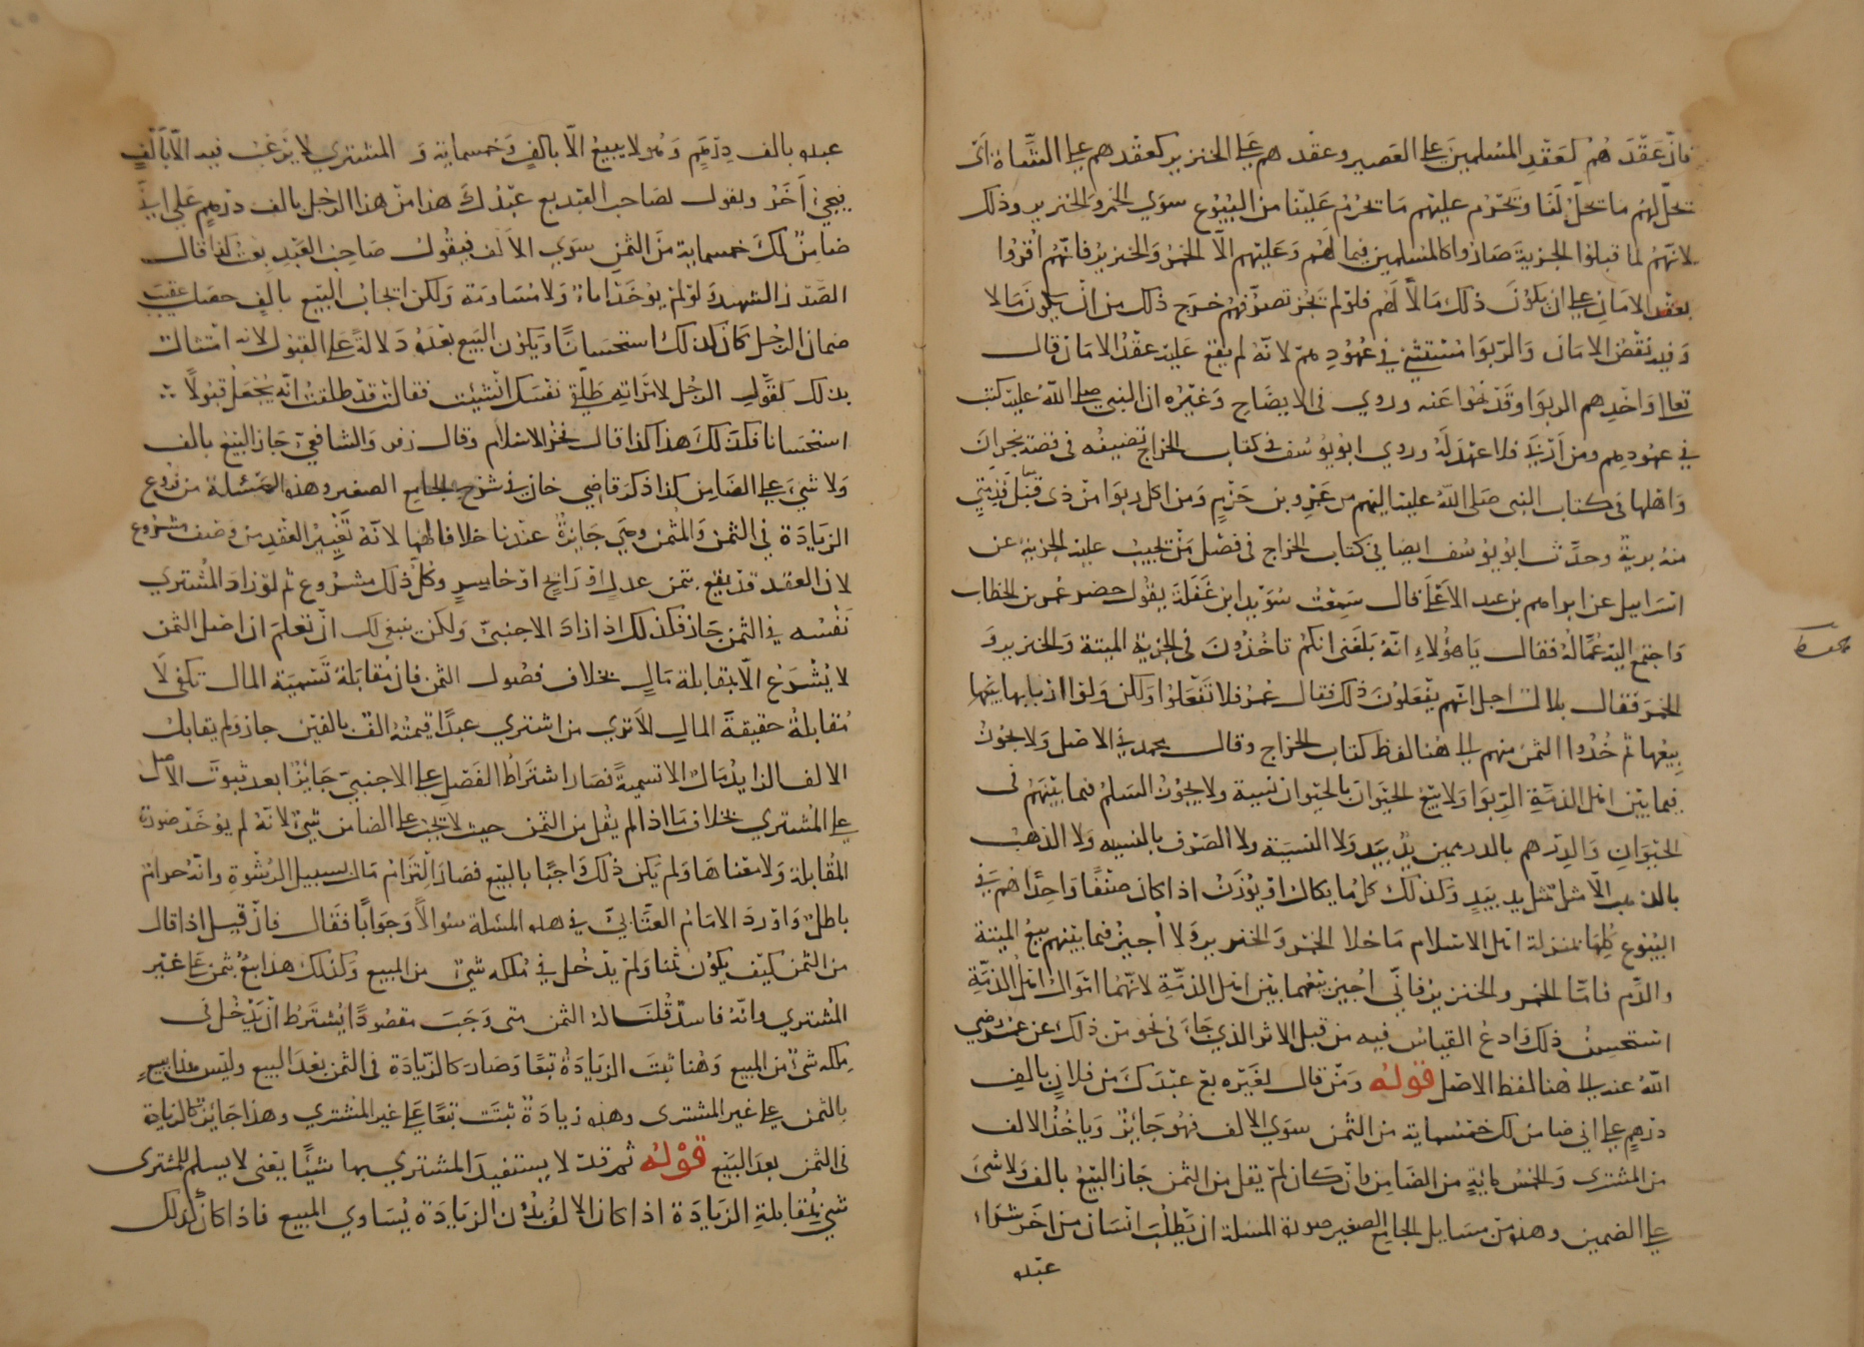 فان عقدهم كعقد المسلمين على العصير وعقدهم على الخنزير كعقدهم على الشاة اى
يحل لهم ما يحل لنا ويحرم عليهم ما يحرم علينا من البيوع سوى الخمر والخنزير وذلك
لانهم لما قبلوا الجزية صاروا كالمسلمين فيما لهم وعليهم الا الخمر والخنزير فانهم اقروا
بعقد الامان على ان يكون ذلك مالا لهم فلو لم يجز تصرفهم خرج ذلك من ان يكون مالا
وفيه نقض الامان والربوا مستثنى في عهودهم لانه لم يقع عليه عقد الامان قال
تعالى واخذهم الربوا وقد نهوا عنه وروي في الايضاح وغيره ان النبي صلى الله عليه كتب
في عهودهم ومن اربى فلا عهد له وروى ابو يوسف في كتاب الخراج تصنيفه في قصة نجران
واهلها في كتاب النبي صلى الله عليه اليهم من عمرو بن حزم ومن اكل ربوا من ذى قبل فذمتي
منه برية وحدث ابو يوسف ايضا في كتاب الخراج في فصل من تجب عليه الجزية عن
اسراييل عن ابراهيم بن عبد الاعلى قال سمعت سويد ابن غفلة يقول حضر عمر بن الخطاب
واجتمع اليه عماله فقال يا هؤلاء انه بلغني انكم تاخذون في الجزية الميتة والخنزير و
الخمر فقال بلال اجل انهم يفعلون ذلك فقال عمر فلا تفعلوا ولكن ولوا اربابها بيعها
بيعها ثم خذوا الثمن منهم الى هنا لفظ كتاب الخراج وقال محمد في الاصل ولا يجوز
فيما بين اهل الذمة الربوا ولا بيع الحيوان بالحيوان نسية ولا يجوز السلم فيما بينهم في
الحيوان والدرهم بالدرهمين يد بيد ولا النسية ولا الصرف بالنسيه ولا الذهب
بالذهب الا مثل بمثل يد بيد وكذلك كل ما يكال او يوزن اذا كان صنفا واحدا هم في
البيوع كلها بمنزلة اهل الاسلام ما خلا الخمر والخنزير ولا اجيز فيما بينهم بيع الميتة
والدم فاما الخمر والخنزير فاني اجيز بيعهما بين اهل الذمة لانهما اموال اهل الذمة
استحسن ذلك وادع القياس فيه من قبل الاثر الذي جاء في نحو من ذلك عن عمر رضي
الله عنه الى هنا لفظ الاصل قوله ومن قال لغيره بع عبدك من فلان بالف
درهم على اني ضامن لك خمسماية من الثمن سوى الالف فهو جائز وياخذ الالف
من المشتري والخمس ماية من الضامن وان كان لم يقل من الثمن جاز البيع بالف ولا شيء
على الضمين وهذه من مسايل الجامع الصغير صورة المسلة ان يطلب انسان من اخر شراء
عبده
عبده بالف درهم وهو لا يبيع الا بالف وخمسماية و المشتري لا يرغب فيه الا بالف
فيجيء اخر ويقول لصاحب العبد بع عبدك هذا من هذا الرجل بالف درهم على اني
ضامن لك خمسماية من الثمن سوى الالف فيقول صاحب العبد بعت كذا قال
الصدر الشهيد ولو لم يوخذ اباء ولا مساومة ولكن ايجاب البيع بالف حصل عقيب
ضمان الرجل كان كذلك استحسانا ويكون البيع بعده دلالة على القبول لانه امتثال
بذلك كقول الرجل لامراته طلقي نفسك ان شئت فقالت قد طلقت انه يجعل قبولا
استحسانا فكذلك هذا كذا قال فخر الاسلام وقال زفر والشافعي جاز البيع بالف
ولا شيء على الضامن كذا ذكر قاضي خان في شرح الجامع الصغير وهذه المسئلة من فروع
الزيادة في الثمن والمثمن وهي جايزة عندنا خلافا لهما لانه تغيير العقد من وصف مشروع
لان العقد قد يقع بثمن عدل او رابح او خاسر وكل ذلك مشروع ثم لو زاد المشتري
نفسه في الثمن جاز فكذلك اذا زاد الاجنبي ولكن ينبغي لك ان تعلم ان اصل الثمن
لا يشرع الا بمقابلة مال بخلاف فضول الثمن فان مقابلة تسمية المال تكفي لا
مقابلة حقيقة المال الا ترى من اشترى عبدا قيمته الف بالفين جاز ولم يقابل
الالف الزايد مال الا تسمية فصار اشتراط الفضل على الاجنبي جائزا بعد ثبوت الاصل
على المشتري بخلاف ما اذا لم يقل من الثمن حيث لا يجب على الضامن شيء لانه لم يوخذ صورة
المقابلة ولا معناها ولم يكن ذلك واجبا بالبيع فصار التزام مال بسبيل الرشوة وانه حرام
باطل واورد الامام العتابي في هذه المسئلة سؤالا وجوابا فقال فان قيل اذا قال
من الثمن كيف يكون ثمنا ولم يدخل في ملكه شيء من المبيع وكذلك هذا بيع بثمن على غير
المشتري وانه فاسد قلنا له الثمن متى وجب مقصودا يشترط ان يدخل في
ملكه شيء من المبيع وهنا تبت الزيادة تبعا وصار كالزيادة في الثمن بعد البيع وليس هذا بيع
بالثمن على غير المشترى وهذه زيادة ثبتت تبعا على غير المشتري وهذا جائز كالزيادة
في الثمن بعد البيع قوله ثم قد لا يستفيد المشتري بها شيئا يعني لا يسلم للمشترى
شيء بمقابلة الزيادة اذا كان الالف بدون الزيادة يساوي المبيع فاذا كان كذلك